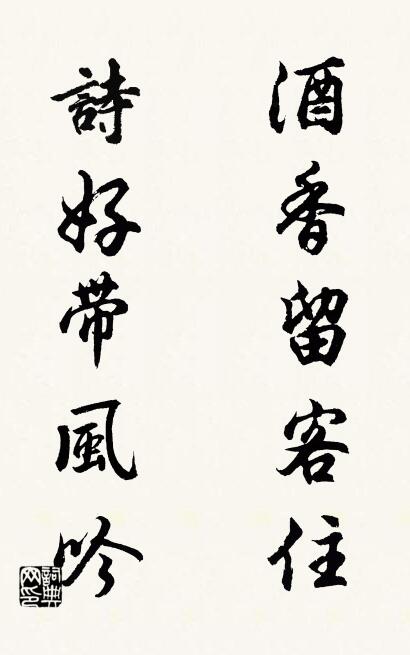 酒香留客住
詩好帶風吟
詞典網印